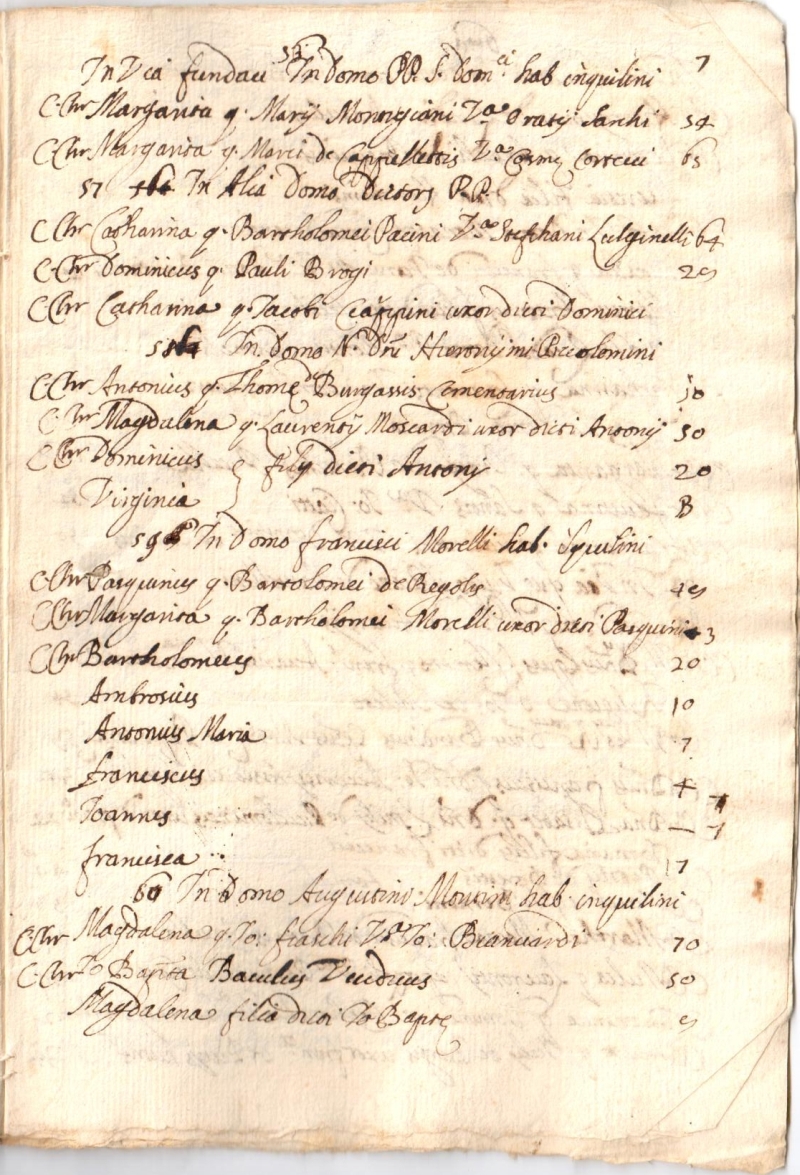 7
In Via fundaci In Domo PP. S. Domci hab inquilini
C. Chr Margarita q. Marij Va Oratij Sarchi 54
C. Chr Margarita q. Marci de Cappellettis Va Cosmę Cortecci 65
57 In Alia Domo Dictorʒ P.P.
C Chr Catharina q. Bartholomei Pacini Va Stephani Lulginelli 64
C. Chr Dominicus q. Pauli Brogi 29
C Chr Catharina q. Jacobi Ciappini uxor dicti Dominici
58 In Domo N. Dni Hieronymi Piccolomini
C Chr Antonius q. Thomę de Burgassis cementarius 50
C. Chr Magdalena q. Laurentij Moscardi uxor dicti Antonij 50
C Chr Dominicus } filij dicti Antonij 20
Virginia 8
59 In Domo francisci Morelli hab. Iquilini
C. Chr Pasquinus q. Bartolomei de Regolis 49
C Chr Margarita q. Bartholomei Morelli uxor dicti Pasquini 43
C Chr Bartholomeus 20
Ambrosius 10
Antonius Maria 7
franciscus 4
Joannes — 7
francisca 17
60 In Domo Augustini hab inquilini
C. Chr Magdalena q. Jo: fraschi Va Jo: Branciardi 70
C. Chr Jo Bapta Baculus Viduus 50
Magdalena filia dicti Jo Baptę 9